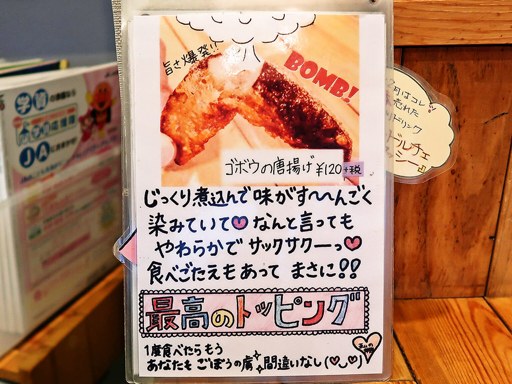 旨さ爆発!!
BOMB!
ゴボウの唐揚げ ¥120+税
じっくり煮込んで味がす〜〜んごく
染みていて♥なんと言っても
やわらかで サックサクーっ♥
食べごたえもあって まさに!!
最高のトッピング
1度食べたらもう
あなたも ごぼうの虜 間違いなし(^◡^)
学習
JA
月はコレ!
売れた
ドリンク
ドルチェ